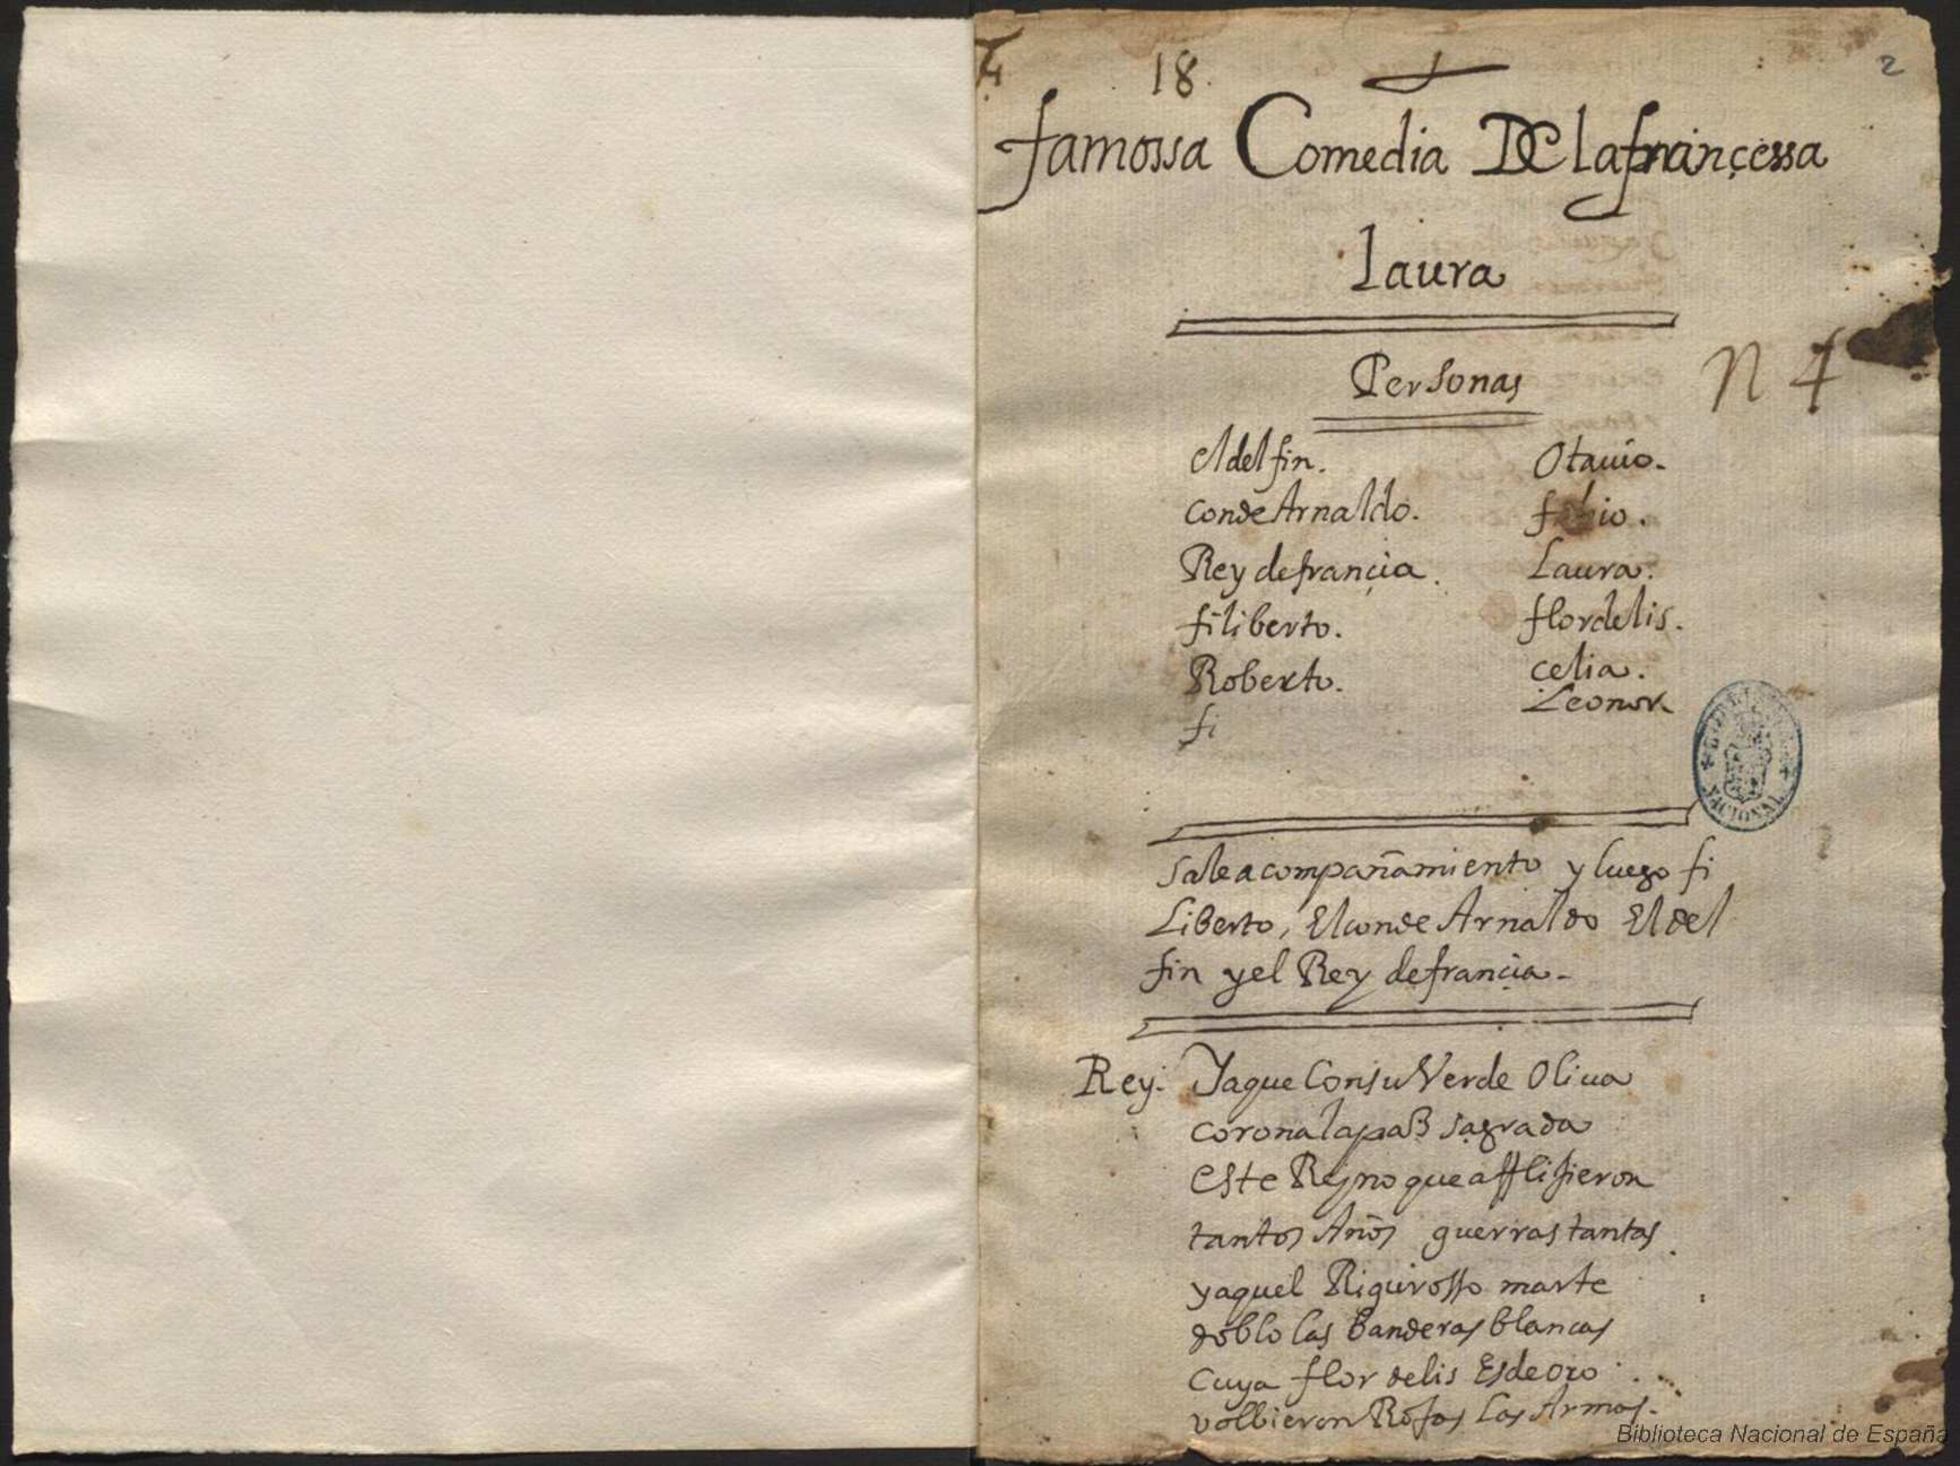 18.
2
famossa Comedia De la françessa
Laura
Personas
N 4
el delfin.
conde Arnaldo.
Rey de françia.
filiberto.
Roberto.
fi
Otauio.
fabio.
Laura.
flordelis.
celia.
Leonor
NACIONAL
sale acompañamiento y luego fi
Liberto, El conde Arnaldo El del
fin y el Rey de françia.
Rey. Ya que Con su Verde Oliua
corona la paz sagrada
este Reyno que afflijieron
tantos Años guerras tantas
y aquel Rigurosso marte
doblo las banderas blancas
cuya flor de lis Es de oro
volbieron Rojas las Armas.
Biblioteca Nacional de España